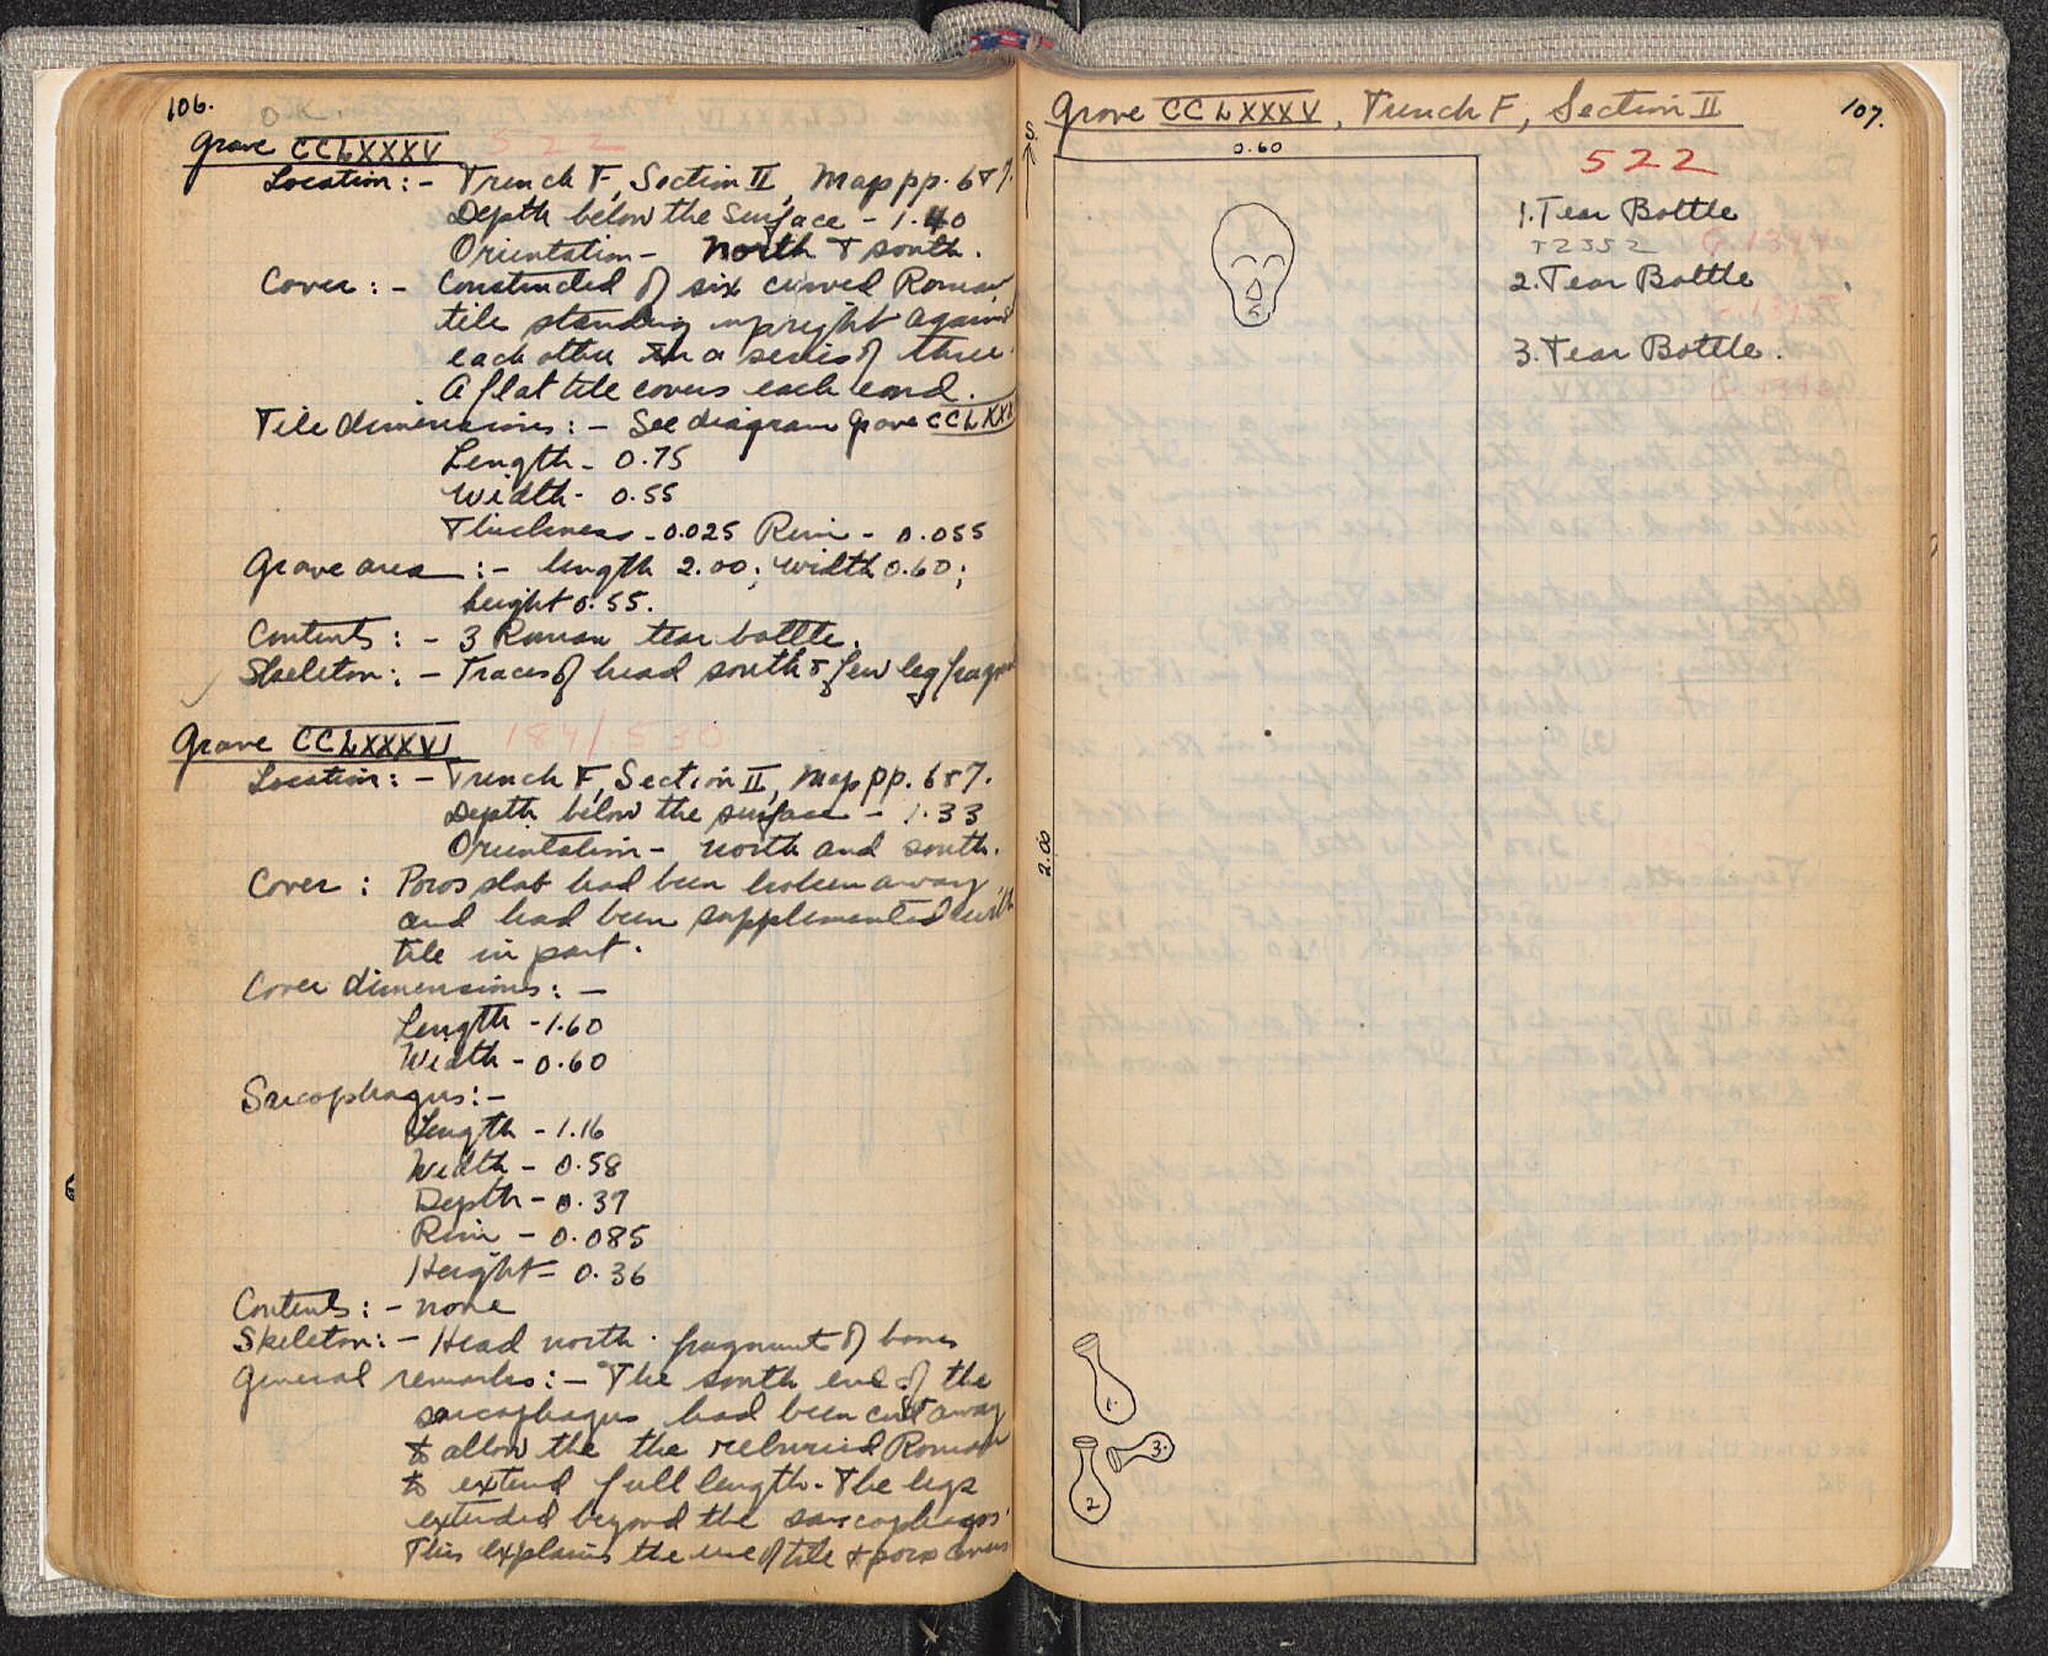 106.
Grave CCLXXXV 522
Location:- Trench F, Section II, Map pp. 6+7.
Depth below the surface - 1.40
Orientation - North + south.
Cover:- Constructed of six curved Roman
tile standing upright against
each other in a series of three.
A flat tile covers each end.
Tile dimensions:- See diagram Grave
Length - 0.75
Width - 0.55
Thickness - 0.025 Rim - 0.055
Grave area:- length 2.00; width 0.60;
height 0.55.
Contents:- 3 Roman tear bottle.
Skeleton:- Traces of head south + few leg
Grave CCLXXXVI 184/530
Location:- Trench F, Section II, Map pp. 6+7.
Depth below the surface - 1.33
Orientation - north and south.
Cover: Poros slab had been broken away
and had been supplemented with
tile in part.
Cover dimensions:-
Length - 1.60
Width - 0.60
Sarcophagus:-
Length - 1.16
Width - 0.58
Depth - 0.37
Rim - 0.085
Height - 0.36
Contents:- none
Skeleton:- Head north. fragments of bones
General remarks:- The south end of the
sarcophagus had been cut away
to allow the the reburied Roman
to extend full length. The legs
extended beyond the sarcophagus.
This explains the use of tile + poros covers
Grave CCLXXXV, Trench F, Section II
107.
S.
0.60
522
1. Tear Bottle
T2352
2. Tear Bottle
3. Tear Bottle.
2.00
1.
2
3.